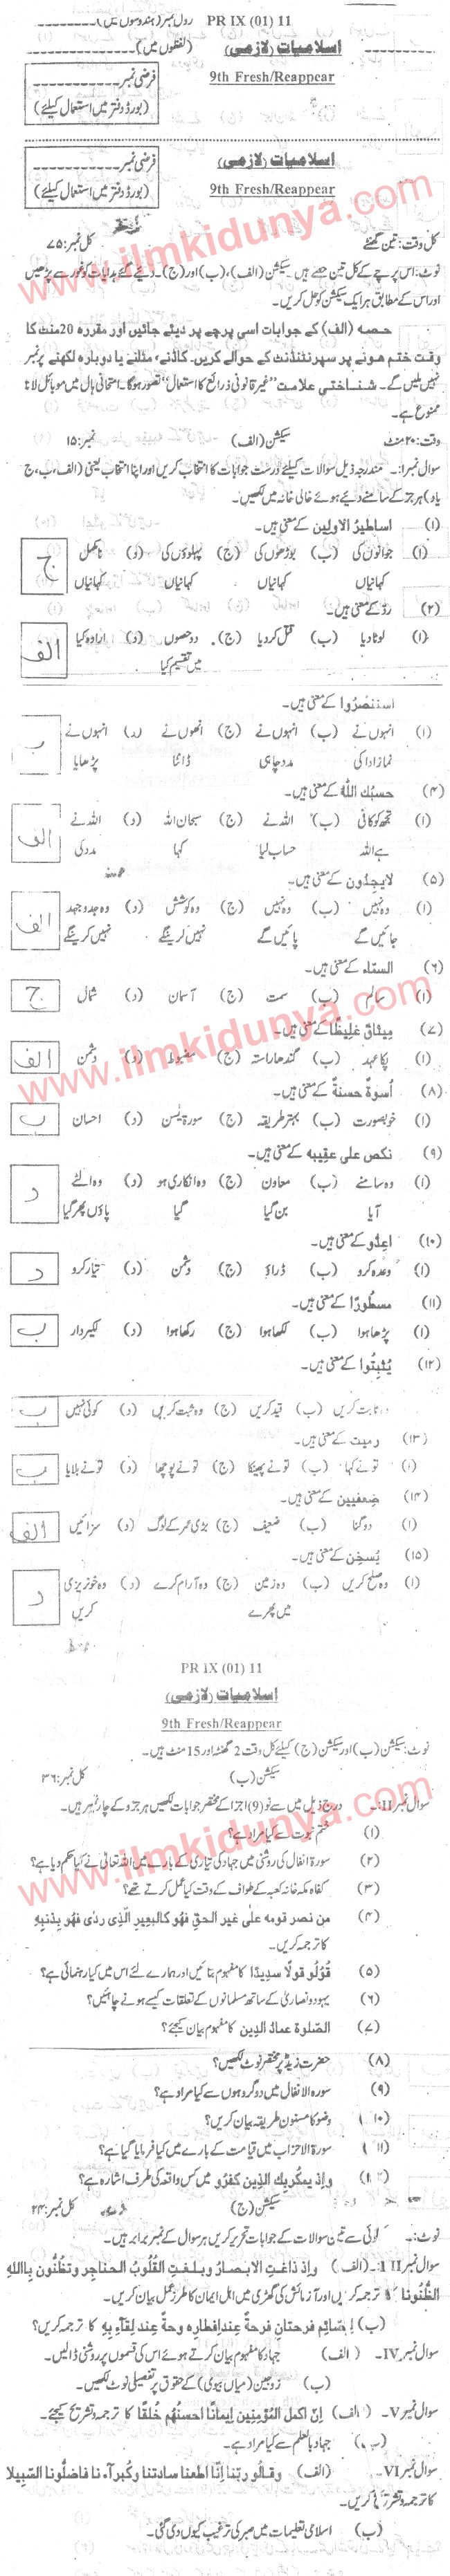 PR IX (01) 11 رول نمبر (ہندسوں میں)
اسلامیات (لازمی) (لفظوں میں)
9th Fresh/Reappear فرضی نمبر
(بورڈ دفتر میں استعمال کیلئے)
اسلامیات (لازمی) فرضی نمبر
9th Fresh/Reappear (بورڈ دفتر میں استعمال کیلئے)
www.ilmkidunya.com
کل وقت: تین گھنٹے کل نمبر: ۷۵
نوٹ: اس پرچے کے کل تین حصے ہیں سیکشن (الف)، (ب) اور (ج)۔ دیئے گئے ہدایات کو غور سے پڑھیں
اور اس کے مطابق ہر ایک سیکشن کو حل کریں۔
حصہ (الف) کے جوابات اسی پرچے پر دیئے جائیں اور مقررہ 20 منٹ کا
وقت ختم ہونے پر سپرنٹنڈنٹ کے حوالے کریں۔ کاٹنے، مٹانے یا دوبارہ لکھنے پر نمبر
نہیں ملیں گے۔ شناختی علامت "غیر قانونی ذرائع کا استعمال" تصور ہوگا۔ امتحانی ہال میں موبائل لانا
ممنوع ہے۔
وقت: ۲۰ منٹ سیکشن (الف) نمبر: ۱۵
سوال نمبر ا:۔ مندرجہ ذیل سوالات کیلئے درست جوابات کا انتخاب کریں اور اپنا انتخاب یعنی (الف، ب، ج
یا د) ہر جز کے سامنے دیئے ہوئے خالی خانہ میں لکھیں۔
(۱) اساطیر الاولین کے معنی ہیں۔
(ا) جوانوں کی کہانیاں (ب) بوڑھوں کی کہانیاں (ج) پہلوؤں کی کہانیاں (د) نامکمل کہانیاں ج
(۲) ردّ کے معنی ہیں۔
(ا) لوٹا دیا (ب) قتل کر دیا (ج) دو حصوں میں تقسیم کیا (د) ارادہ کیا الف
استنصروا کے معنی ہیں۔
(ا) انہوں نے نماز ادا کی (ب) انہوں نے مدد چاہی (ج) انھوں نے ڈانٹا (د) انہوں نے پڑھایا ب
(۴) حسبک اللہ کے معنی ہیں۔
(ا) تجھ کو کافی ہے اللہ (ب) اللہ نے حساب لیا (ج) سبحان اللہ کہا (د) اللہ نے مدد کی الف
(۵) لایجدون کے معنی ہیں۔
(ا) وہ نہیں جائیں گے (ب) وہ نہیں پائیں گے (ج) وہ کوشش نہیں کرینگے (د) وہ جدوجہد نہیں کرینگے الف
(۶) السلم کے معنی ہیں۔
(ا) سالم (ب) سمت (ج) آسان (د) شمال ج
www.ilmkidunya.com
(۷) میثاق غلیظًا کے معنی ہیں۔
(ا) پکا عہد (ب) گندھا راستہ (ج) مضبوط (د) دشمن الف
(۸) اسوۃ حسنۃ کے معنی ہیں۔
(ا) خوبصورت (ب) بہتر طریقہ (ج) سورۃ یٰسن (د) احسان ب
(۹) نکص علی عقبیہ کے معنی ہیں۔
(ا) وہ سامنے آیا (ب) معاون بن گیا (ج) وہ انکاری ہو گیا (د) وہ الٹے پاؤں پھر گیا د
(۱۰) اعدّو کے معنی ہیں۔
(ا) وعدہ کرو (ب) ڈراؤ (ج) دشمن (د) تیار کرو د
(۱۱) مسطورًا کے معنی ہیں۔
(ا) پڑھا ہوا (ب) لکھا ہوا (ج) رکھا ہوا (د) لکیردار ب
(۱۲) یُثبتوا کے معنی ہیں۔
ثابت کریں (ب) قید کریں (ج) وہ ثبت کریں (د) کوئی نہیں ب
(۱۳) رمیت کے معنی ہیں۔
(ا) تو نے کہا (ب) تو نے پھینکا (ج) تو نے پوچھا (د) تو نے بلایا ب
(۱۴) ضعفین کے معنی ہیں۔
(ا) دو گنا (ب) ضعیف (ج) بڑی عمر کے لوگ (د) سزائیں الف
(۱۵) یُسخن کے معنی ہیں۔
(ا) وہ صلح کریں (ب) وہ زمین میں پھرے (ج) وہ آرام کرے (د) وہ خونریزی کریں د
PR IX (01) 11
اسلامیات (لازمی)
9th Fresh/Reappear
نوٹ: سیکشن (ب) اور سیکشن (ج) کیلئے کل وقت 2 گھنٹہ اور 15 منٹ ہیں۔
سیکشن (ب) کل نمبر: ۳۶
سوال نمبر II:۔ درج ذیل میں سے نو (9) اجزا کے مختصر جوابات لکھیں ہر جز و کے چار نمبر ہیں۔
www.ilmkidunya.com
(۱) ختم نبوت سے کیا مراد ہے؟
(۲) سورۃ انفال کی روشنی میں جہاد کی تیاری کے بارے میں اللہ تعالیٰ نے کیا حکم دیا ہے؟
(۳) کفار مکہ خانہ کعبہ کے طواف کے وقت کیا عمل کرتے تھے؟
(۴) من نصر قومہ علی غیر الحق فھو کالبعیر الّذی ردی فھو بذنبہ
کا ترجمہ کریں۔
(۵) قُولُو قولًا سدیدًا کا مفہوم بتائیں اور ہمارے لئے اس میں کیا رہنمائی ہے؟
(۶) یہود و نصاریٰ کے ساتھ مسلمانوں کے تعلقات کیسے ہونے چاہئیں؟
(۷) الصّلوۃ عمادُ الدین کا مفہوم بیان کیجئے؟
(۸) حضرت زیدؓ پر مختصر نوٹ لکھیں؟
(۹) سورہ الانفال میں دو گروہوں سے کیا مراد ہے؟
(۱۰) وضو کا مسنون طریقہ بیان کریں؟
(۱۱) سورۃ الاحزاب میں قیامت کے بارے میں کیا فرمایا گیا ہے؟
(۱۲) واِذ یمکُر بک الّذین کفرُو میں کس واقعہ کی طرف اشارہ ہے؟
سیکشن (ج) کل نمبر: ۲۴
نوٹ:۔ کوئی سے تین سوالات کے جوابات تحریر کریں ہر سوال کے نمبر برابر ہیں۔
سوال نمبر III:۔ (الف) واِذ ذاغتِ الابصارُ وبلغتِ القُلُوبُ الحناجر وتظُنُّون باللہِ
الظُّنُونا کا ترجمہ کریں اور آزمائش کی گھڑی میں اہل ایمان کا طرز عمل بیان کریں۔
(ب) لِصّائم فرحتان فرحۃٌ عندَ افطارِہ وحۃٌ عندَ لقآءِ بِہ کا ترجمہ کریں؟
سوال نمبر IV۔ (الف) جہاد کا مفہوم بیان کرتے ہوئے اس کی قسموں پر روشنی ڈالیں۔
(ب) زوجین (میاں بیوی) کے حقوق پر تفصیلی نوٹ لکھیں۔
سوال نمبر V۔ (الف) اِنّ اکمل المُؤمنین اِیمانًا احسنُھم خُلقًا کا ترجمہ و تشریح کیجئے۔
(ب) جہاد بالعلم سے کیا مراد ہے۔
سوال نمبر VI۔ (الف) وقالُو ربّنا اِنّا اطعنا سادتنا وکُبرآءَ نا فاضلُّونا السّبیلا
کا ترجمہ و تشریح کریں۔
(ب) اسلامی تعلیمات میں صبر کی ترغیب کیوں دی گئی۔